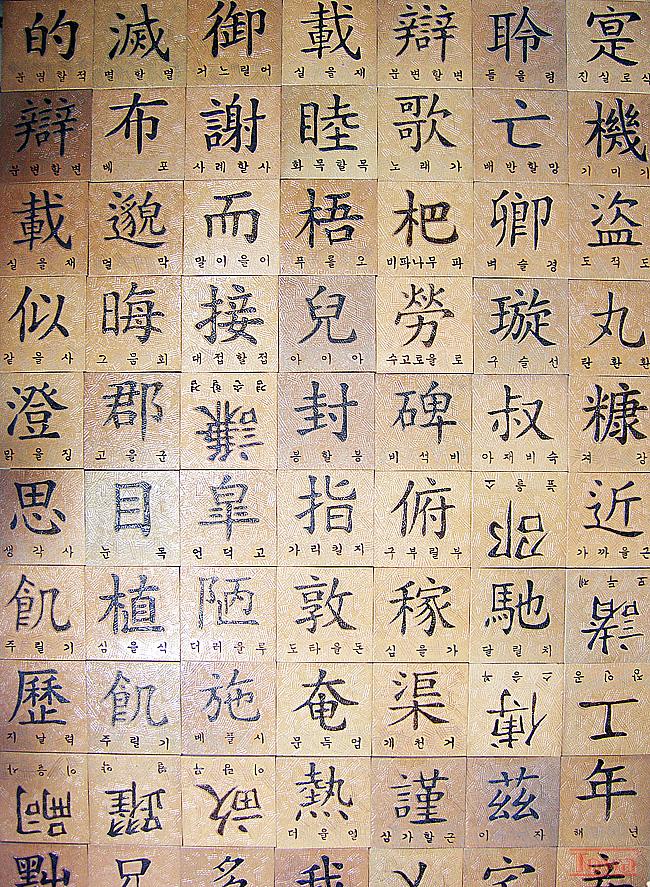 的 滅 御 載 辯 聆 寔
분명할적 멸할멸 거느릴어 실을재 분변할변 들을령 진실로식
辯 布 謝 睦 歌 亡 機
분변할변 베포 사례할사 화목할목 노래가 배반할망 기미기
載 邈 而 梧 杷 卿 盜
실을재 멀막 말이을이 푸를오 비파나무파 벼슬경 도적도
似 晦 接 兒 勞 璇 丸
같을사 그믐회 대접할접 아이아 수고로울로 구슬선 란환환
澄 郡 謙 封 碑 叔 糠
맑을징 고을군 봉할봉 비석비 아재비숙 겨강
思 目 皐 指 俯 近
생각사 눈목 언덕고 가리킬지 구부릴부 가까울근
飢 植 陋 敦 稼 馳
주릴기 심을식 더러울루 도타울돈 심을가 달릴치
歷 飢 施 奄 渠 工
지날력 주릴기 베풀시 문득엄 개천거 장인공
嗣 躍 畝 熱 謹 玆 年
더울열 삼가할근 이자 해년